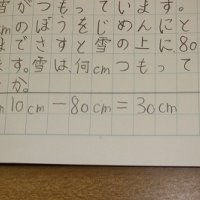 雪がつもっています。
cmのぼうをじめんにと
までさすと雪の上に80
ます。雪は、何cmつもって
か。
m 10cm－80cm＝30cm